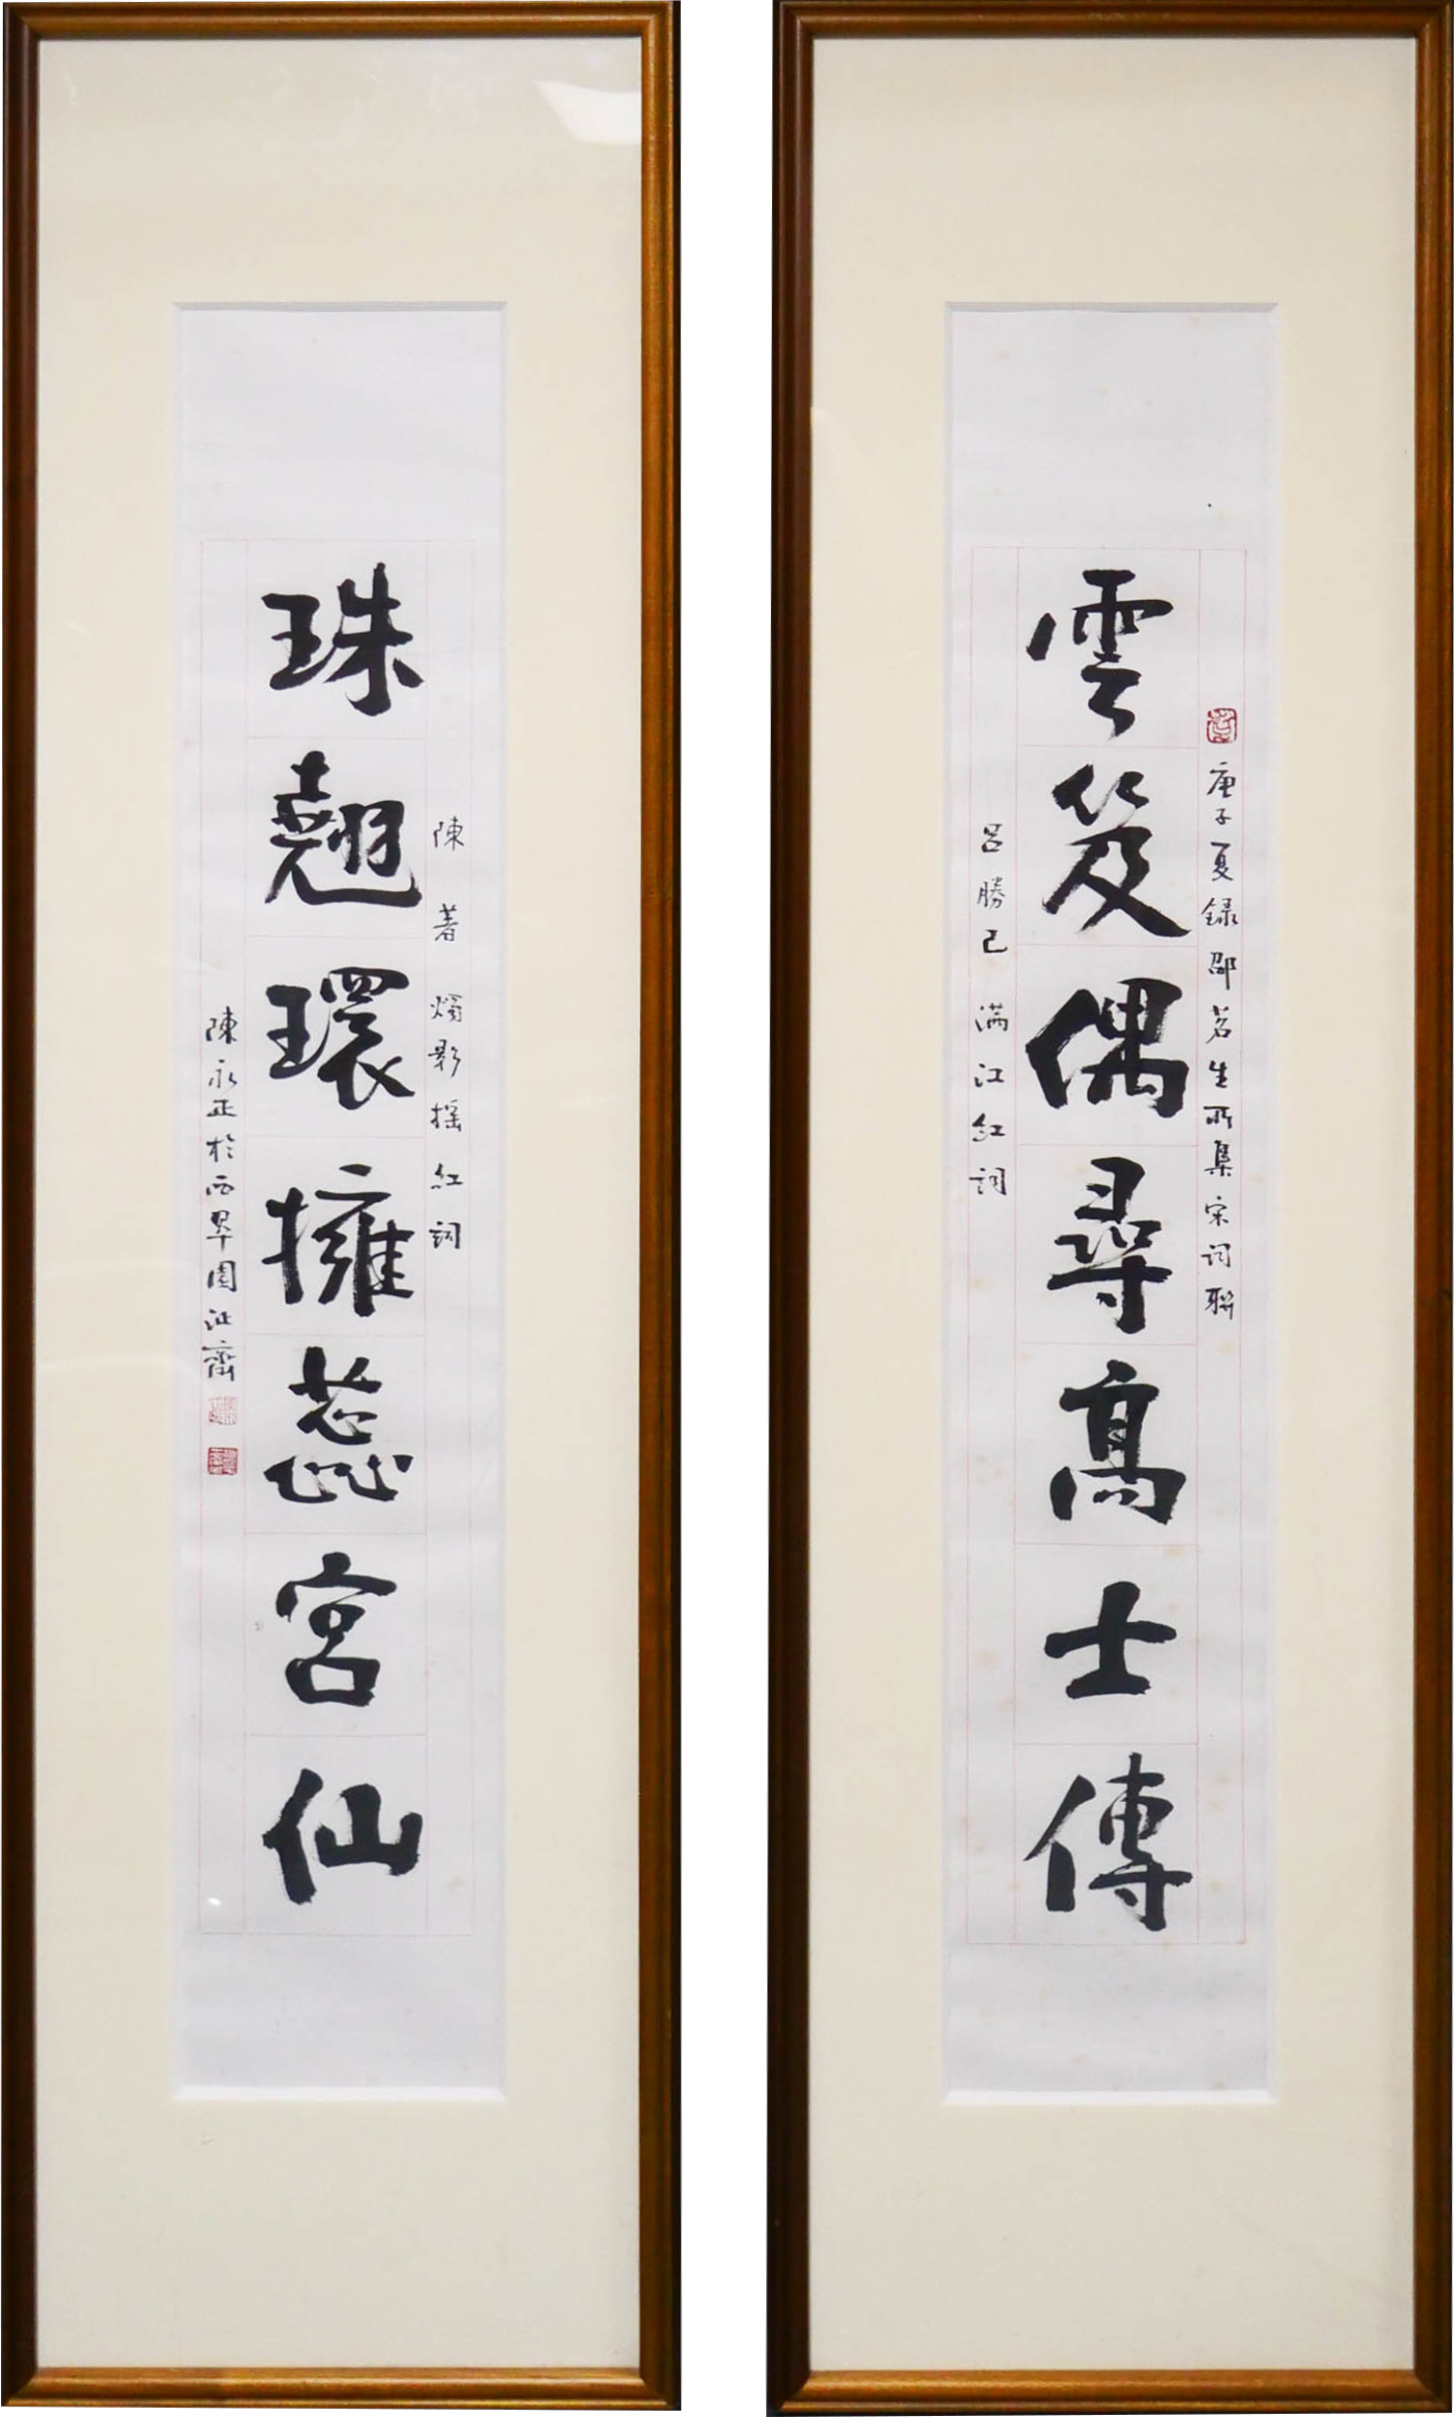 庚子夏録邵茗生所集宋词聯
雲笈偶尋高士傳
呂勝己 满江红词
陳著 燭影摇紅詞
珠翹環擁蕊宮仙
陳永正於西畢園沚齋